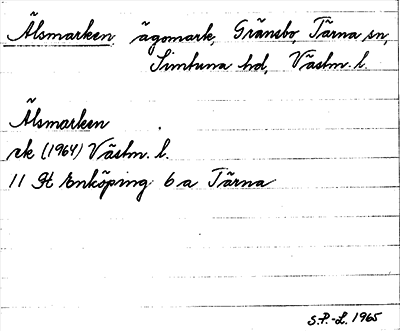 Älsmarken ägomark, Gränsbo, Tärna sn,
Simtuna hd, Västm. l.
Älsmarken
ek (1964) Västm. l.
11 H Enköping 6 a Tärna
S.P.-L. 1965